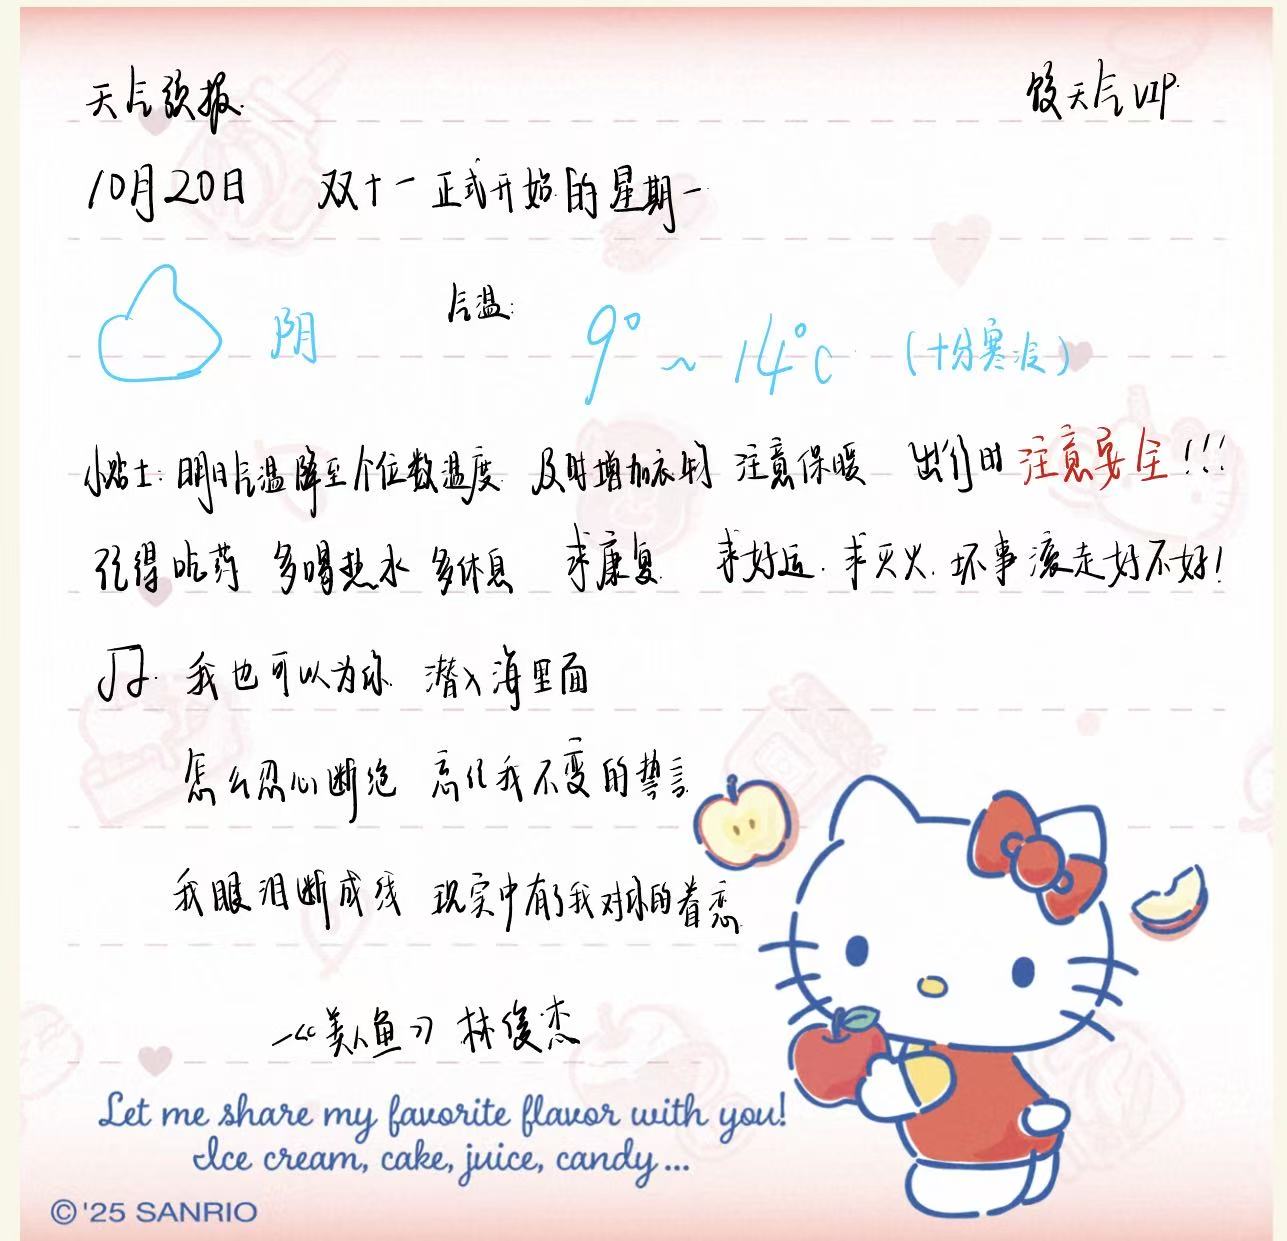 天气预报
饺天气VIP
10月20日 双十一正式开始的星期一
阴 气温: 9°~14°C (十分寒冷)
小贴士: 明日气温降至个位数温度 及时增加衣物 注意保暖 出行时注意安全!!!
记得吃药 多喝热水 多休息 求康复 求好运. 求灭火. 坏事滚走好不好!
我也可以为你 潜入海里面
怎么忍心断绝 忘记我不变的誓言
我眼泪断成线 现实中有了我对你的眷恋
—《美人鱼》林俊杰
Let me share my favorite flavor with you!
Ice cream, cake, juice, candy...
©'25 SANRIO